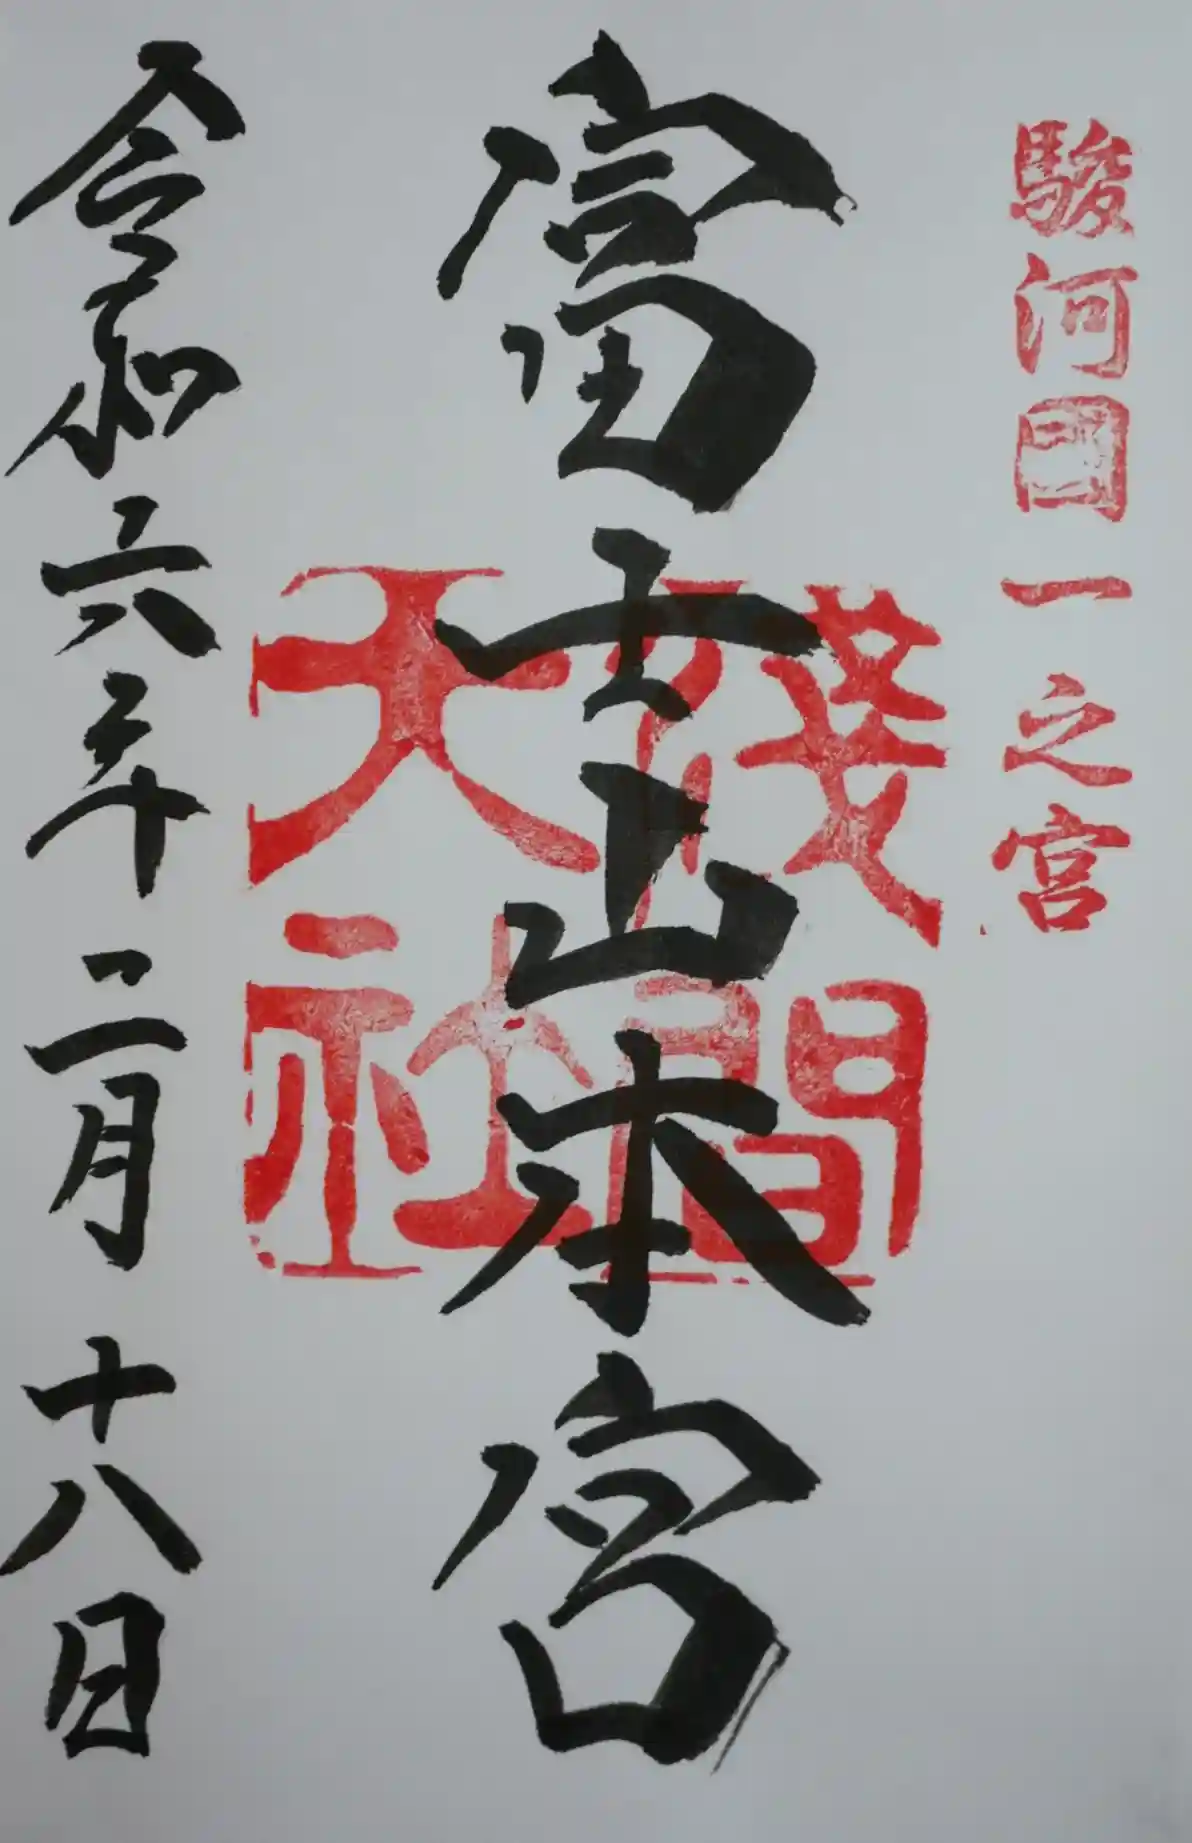 駿河國一之宮
富士山本宮
淺間大社
令和六年二月十八日